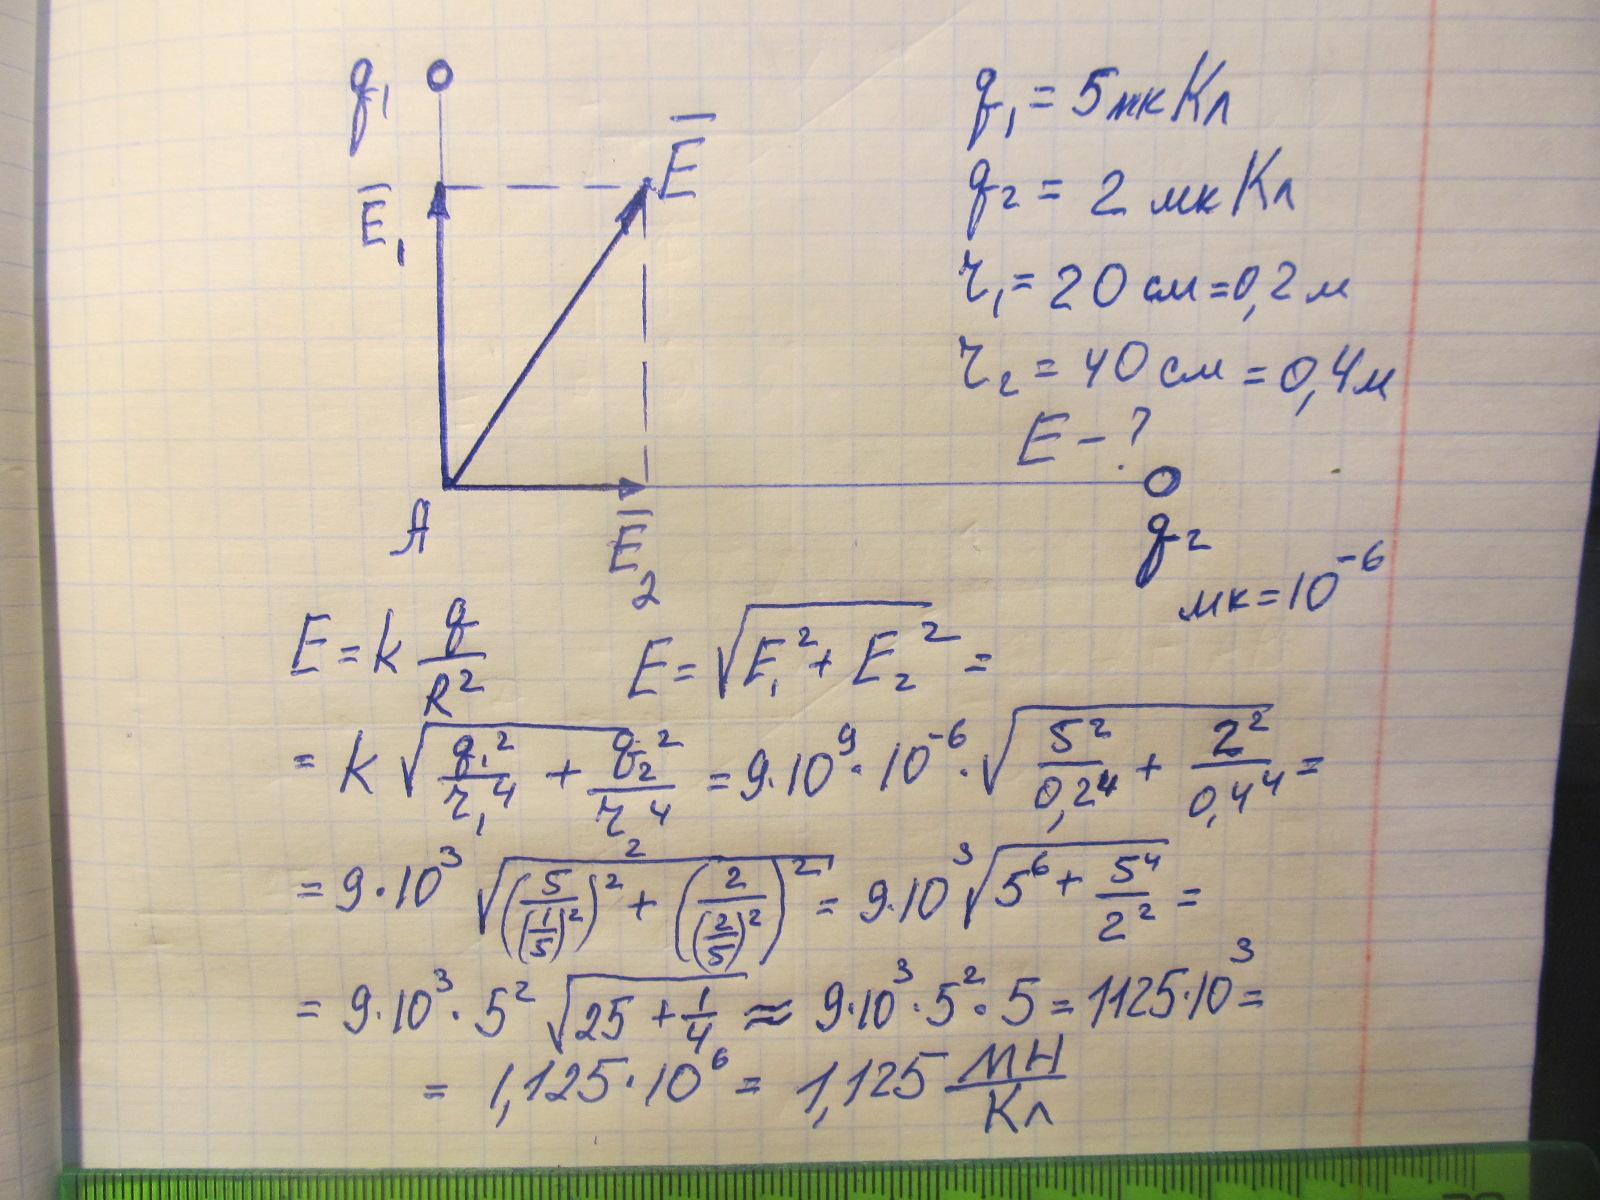 q₁
q₁ = 5 мкКл
E̅
q₂ = 2 мкКл
E̅₁
r₁ = 20 см = 0,2 м
r₂ = 40 см = 0,4 м
E - ?
A
E̅₂
q₂
мк = 10⁻⁶
E = k q/R² E = √(E₁² + E₂²) =
= k √(q₁²/r₁⁴ + q₂²/r₂⁴) = 9·10⁹·10⁻⁶·√(5²/0,2⁴ + 2²/0,4⁴) =
= 9·10³ √((5/(1/5)²)² + (2/(2/5)²)²) = 9·10³ √(5⁶ + 5⁴/2²) =
= 9·10³·5² √(25 + 1/4) ≈ 9·10³·5²·5 = 1125·10³ =
= 1,125·10⁶ = 1,125 МН/Кл